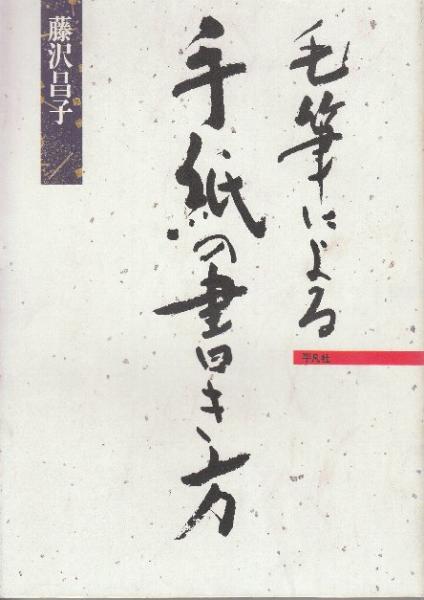 毛筆による
手紙の書き方
藤沢昌子
平凡社